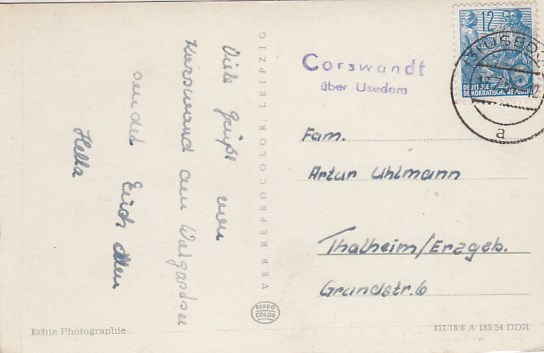 Viele Grüße von
Korswand am Wolgastsee
sendet Euch allen
Hella
VEB REPROCOLOR LEIPZIG
REPRO
COLOR
Echte Photographie
12
DEUTSCHE
DEMOKRATISCHE REPUBLIK
USEDOM
a
Corswandt
über Usedom
Fam.
Artur Uhlmann
Thalheim/Erzgeb.
Grundstr. 6
III/18/6 A 183/54 DDR